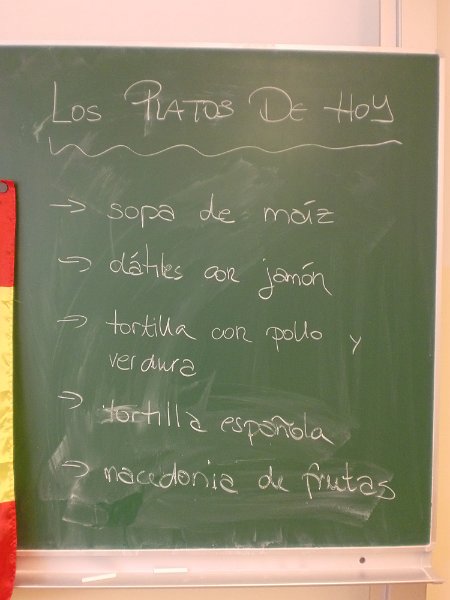 LOS PLATOS DE HOY
→ sopa de maíz
→ dátiles con jamón
→ tortilla con pollo y
verdura
→ tortilla española
→ macedonia de frutas